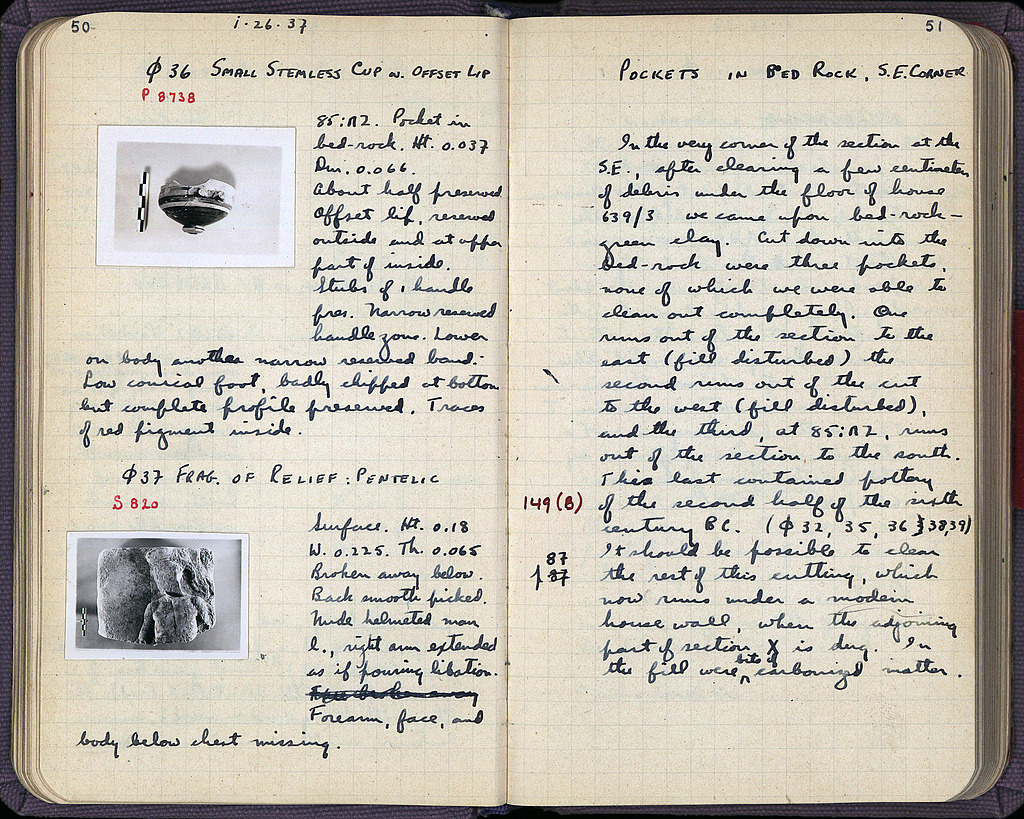 50
1·26·37
Φ 36 SMALL STEMLESS CUP W. OFFSET LIP
P 8738
85:ΠΖ. Pocket in
bed-rock. Ht. 0.037
Dim. 0.066.
About half preserved
Offset lip, reserved
outside and at upper
part of inside.
Stubs of 1 handle
pres. Narrow reserved
handle zone. Lower
on body another narrow reserved band.
Low conical foot, badly chipped at bottom
but complete profile preserved. Traces
of red pigment inside.
Φ37 FRAG. OF RELIEF: PENTELIC
S 820
Surface. Ht. 0.18
W. 0.225. Th. 0.065
Broken away below.
Back smooth picked.
Nude helmeted man
l., right arm extended
as if pouring libation.
broken away
Forearm, face, and
body below chest missing.
51
POCKETS IN BED ROCK, S.E. CORNER
In the very corner of the section at the
S.E., after clearing a few centimeters
of debris under the floor of house
639/3 we came upon bed-rock –
green clay. Cut down into the
bed-rock were three pockets,
none of which we were able to
clean out completely. One
runs out of the section to the
east (fill disturbed) the
second runs out of the cut
to the west (fill disturbed),
and the third, at 85:ΠΖ, runs
out of the section to the south.
This last contained pottery
149 (B) of the second half of the sixth
century B.C. (Φ 32, 35, 36, 38, 39)
It should be possible to clean
87
p 87 the rest of this cutting, which
now runs under a modern
house wall, when the adjoining
part of section X is dug. In
the fill were bits of carbonized matter.